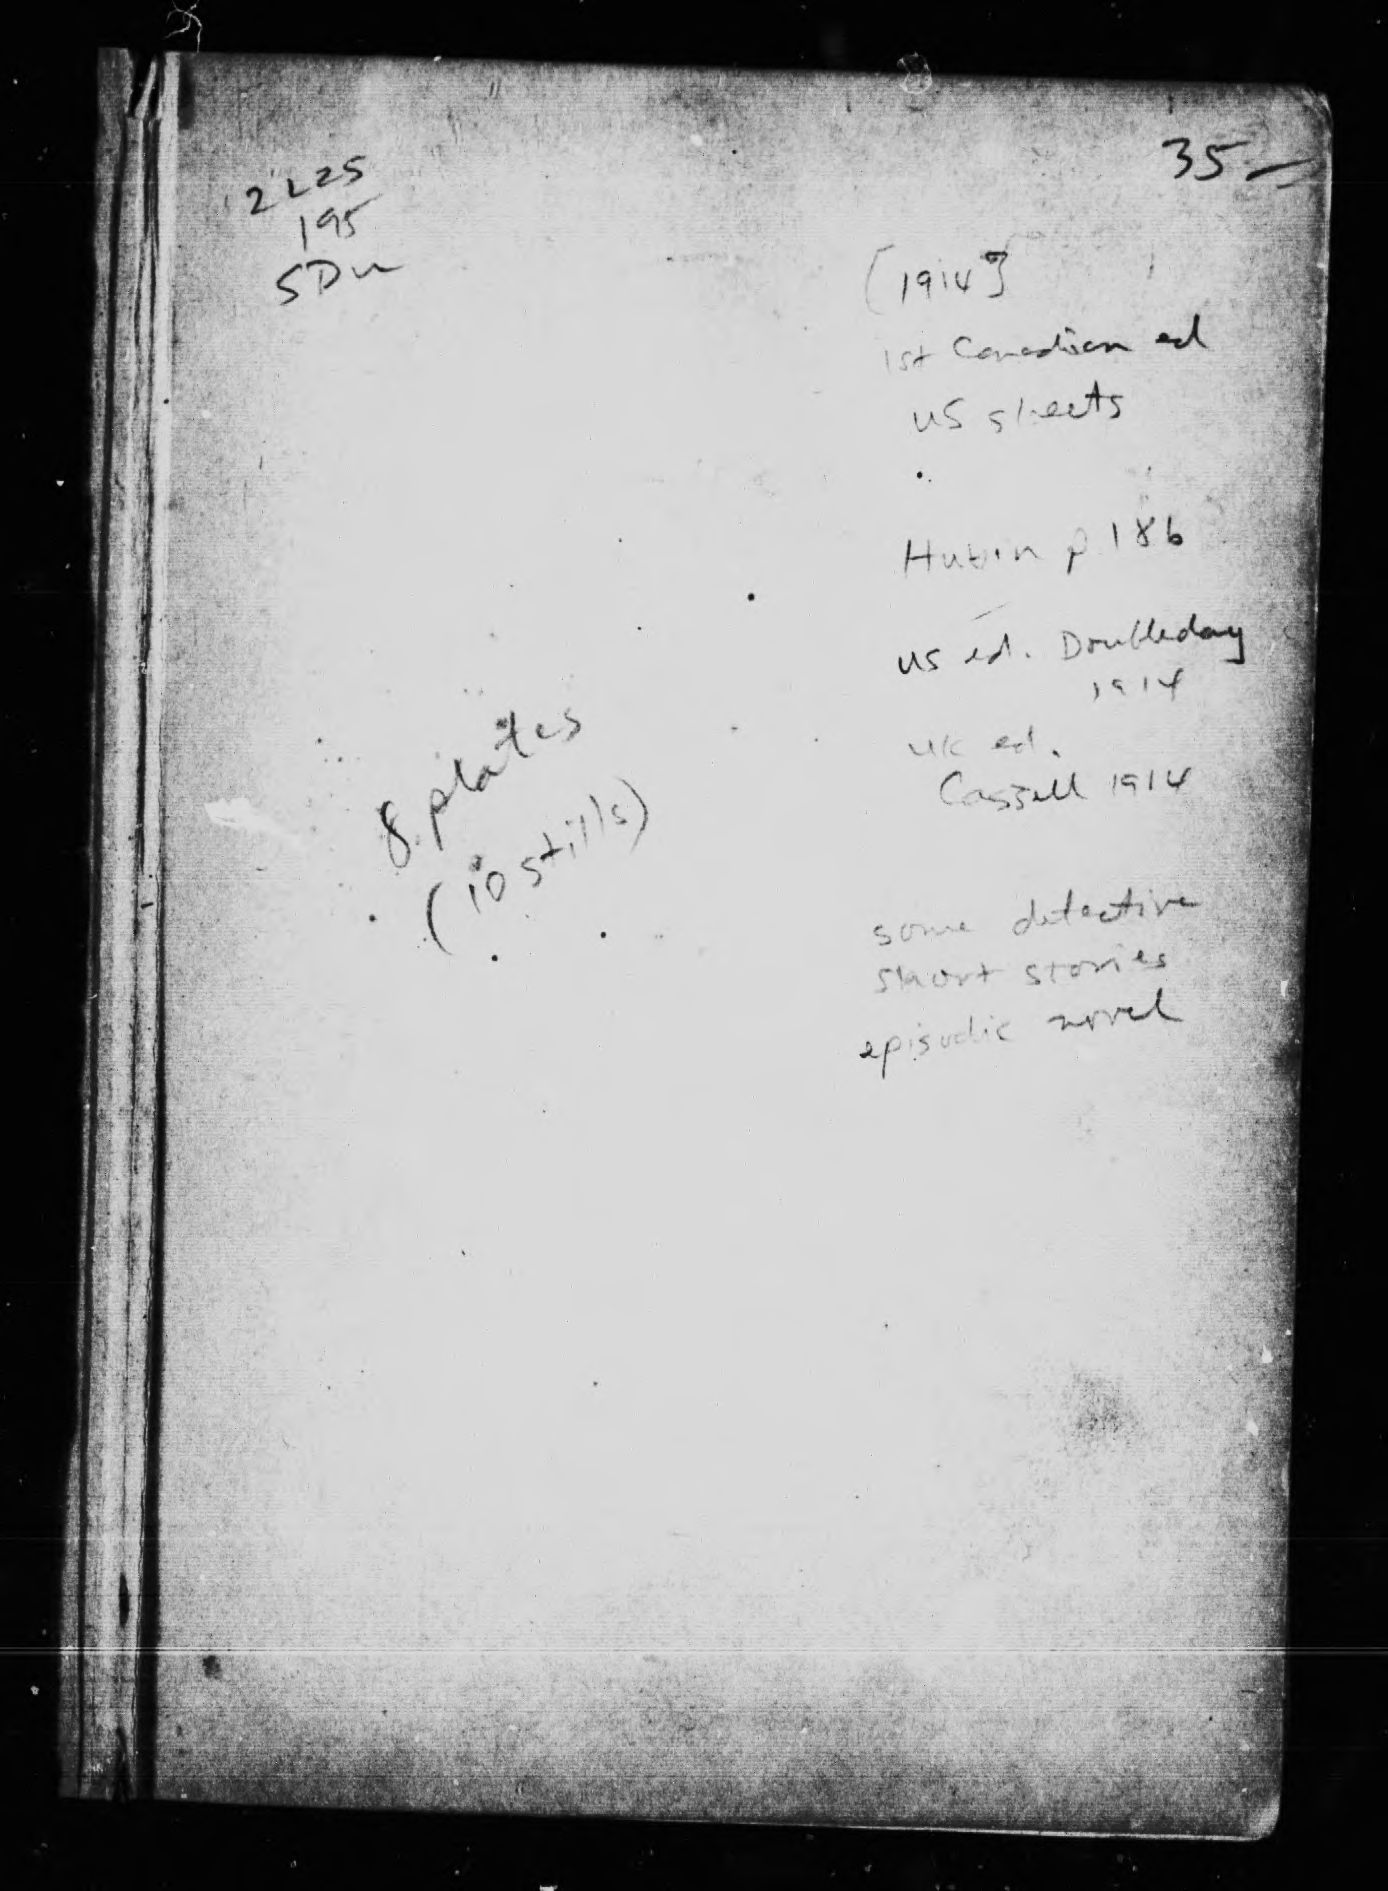 35-
2225
195
SDn
[1914]
1st Canadian ed
US sheets
Hubin p 186
US ed. Doubleday
1914
UK ed.
Cassell 1914
8 plates
(10 stills)
some detective
short stories
episodic novel